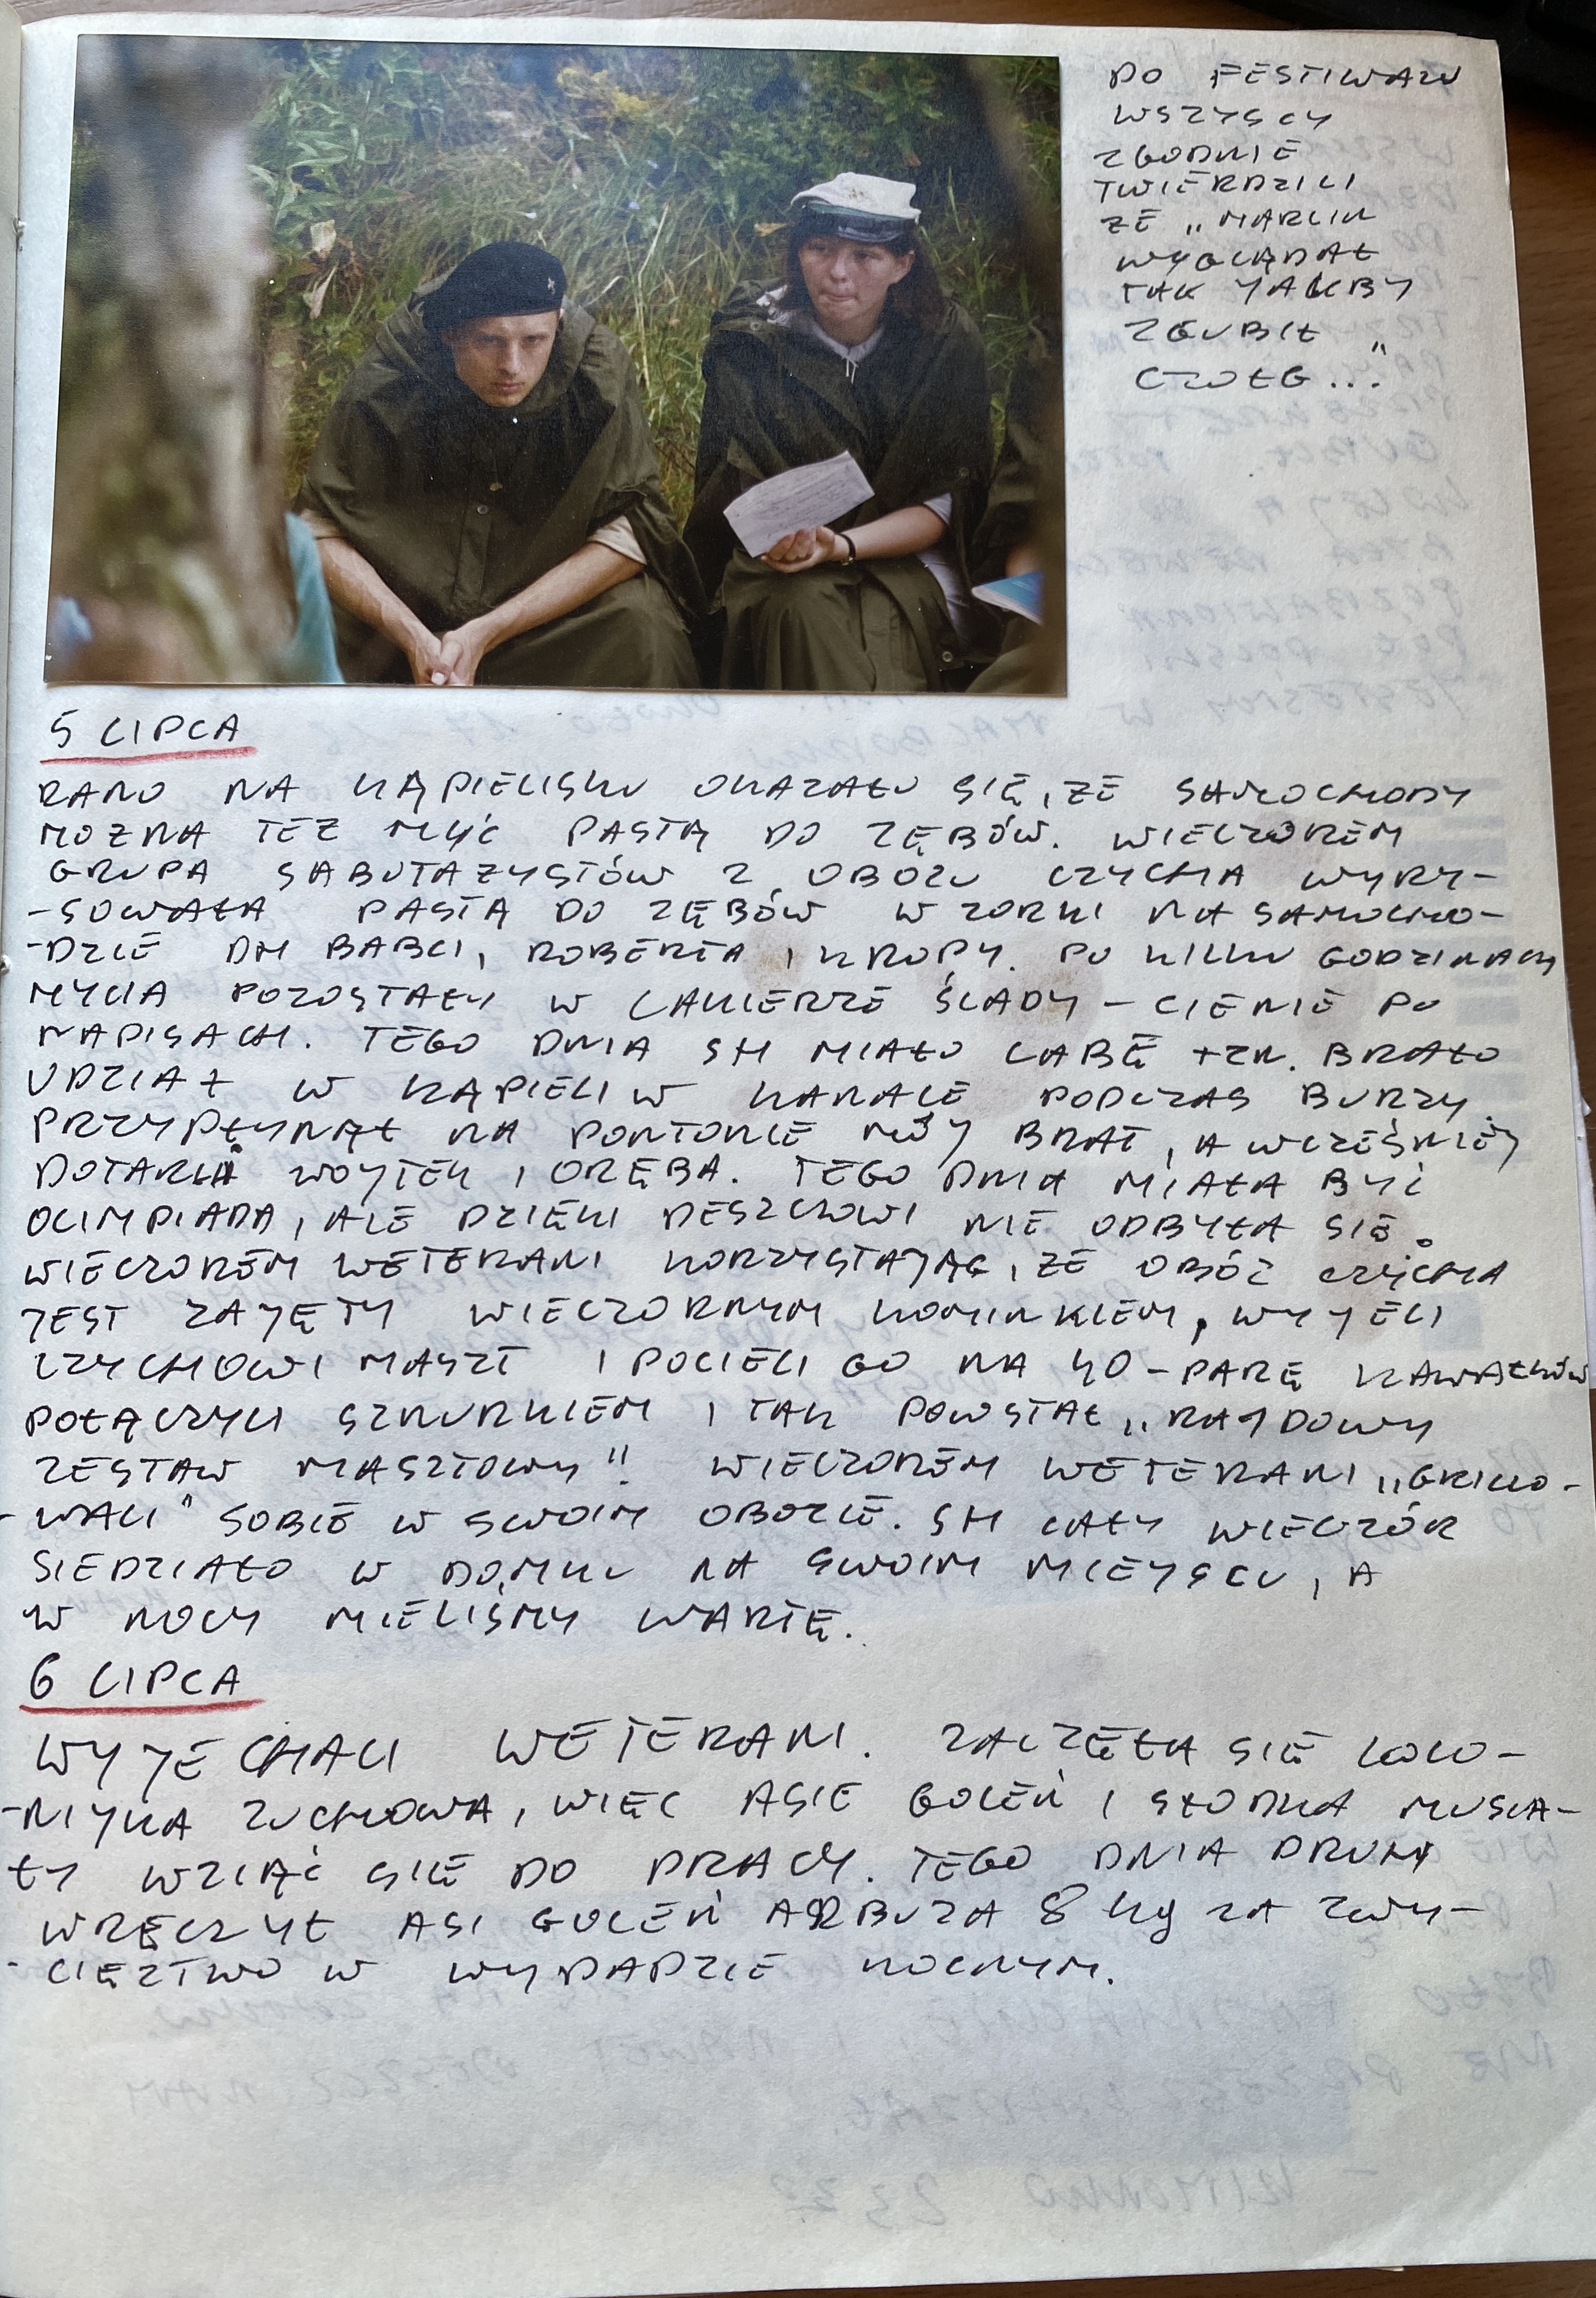 PO FESTIWALU
WSZYSCY
ZGODNIE
TWIERDZILI
ŻE „MARCIN
WYGLĄDAŁ
TAK JAKBY
ZGUBIŁ
CZOŁG..."
5 LIPCA
RANO NA KĄPIELISKU OKAZAŁO SIĘ, ŻE SAMOCHODY
MOŻNA TEŻ MYĆ PASTĄ DO ZĘBÓW. WIECZOREM
GRUPA SABOTAŻYSTÓW Z OBOZU CZYCHA WYRY-
-SOWAŁA PASTĄ DO ZĘBÓW WZORKI NA SAMOCHO-
-DZIE DH BABCI, ROBERTA I KROPY. PO KILKU GODZINACH
MYCIA POZOSTAŁY W LAKIERZE ŚLADY – CIENIE PO
NAPISACH. TEGO DNIA SH MIAŁO LABĘ TZN. BRAŁO
UDZIAŁ W KĄPIELI W KANALE PODCZAS BURZY.
PRZYPŁYNĄŁ NA PONTONIE MÓJ BRAT, A WCZEŚNIEJ
DOTARLI WOJTEK I ORĘBA. TEGO DNIA MIAŁA BYĆ
OLIMPIADA, ALE DZIĘKI DESZCZOWI NIE ODBYŁA SIĘ.
WIECZOREM WETERANI KORZYSTAJĄC, ŻE OBÓZ CZYCHA
JEST ZAJĘTY WIECZORNYM KOMINKIEM, WYJĘLI
CZYCHOWI MASZT I POCIĘLI GO NA 40-PARĘ KAWAŁKÓW
POŁĄCZYLI SZNURKIEM I TAK POWSTAŁ „RAJDOWY
ZESTAW MASZTOWY"! WIECZOREM WETERANI „GRILLO-
-WALI" SOBIE W SWOIM OBOZIE. SH CAŁY WIECZÓR
SIEDZIAŁO W DOMKU NA SWOIM MIEJSCU, A
W NOCY MIELIŚMY WARTĘ.
6 LIPCA
WYJECHALI WETERANI. ZACZĘŁA SIĘ KOLO-
-NIJKA ZUCHOWA, WIĘC ASIE GOLEŃ I SŁODKA MUSIA-
ŁY WZIĄĆ SIĘ DO PRACY. TEGO DNIA DRUHY
WRĘCZYŁ ASI GOLEŃ ARBUZA 8 kg ZA ZWY-
-CIĘZTWO W WYPADZIE NOCNYM.